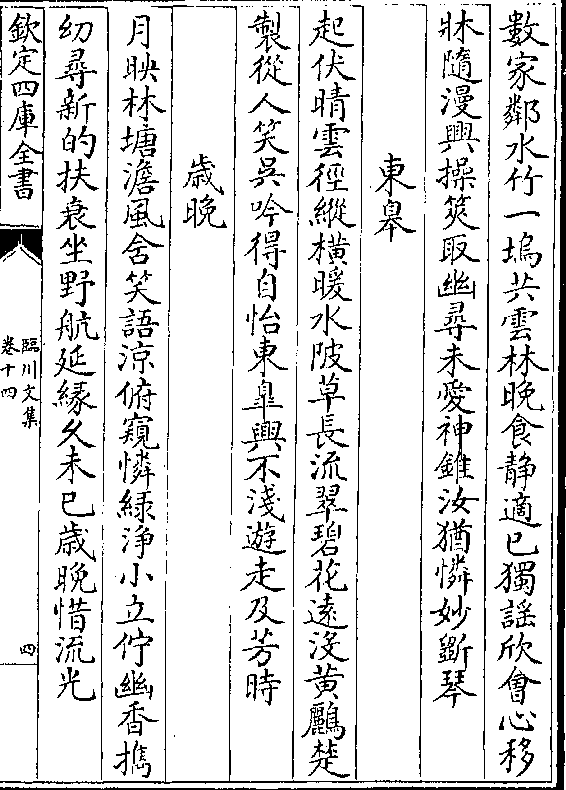 數家鄰水竹一塢共雲林晚食静適已獨謡欣會心移
牀隨漫興操筴取幽尋未愛神錐汝猶憐妙斵琴
東皋
起伏晴雲徑縱橫暖水陂草長流翠碧花遠没黄鸝楚
製從人笑吳吟得自怡東臯興不淺遊走及芳時
歳晚
月映林塘澹風含笑語涼俯窺憐緑浄小立佇幽香攜
幼尋新的扶衰坐野航延緣久未已歳晚惜流光
欽定四庫全書
臨川文集
卷十四
四